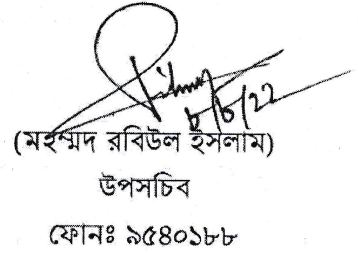 ৮/৮/২২
(মহম্মদ রবিউল ইসলাম)
উপসচিব
ফোনঃ ৯৫৪০১৮৮